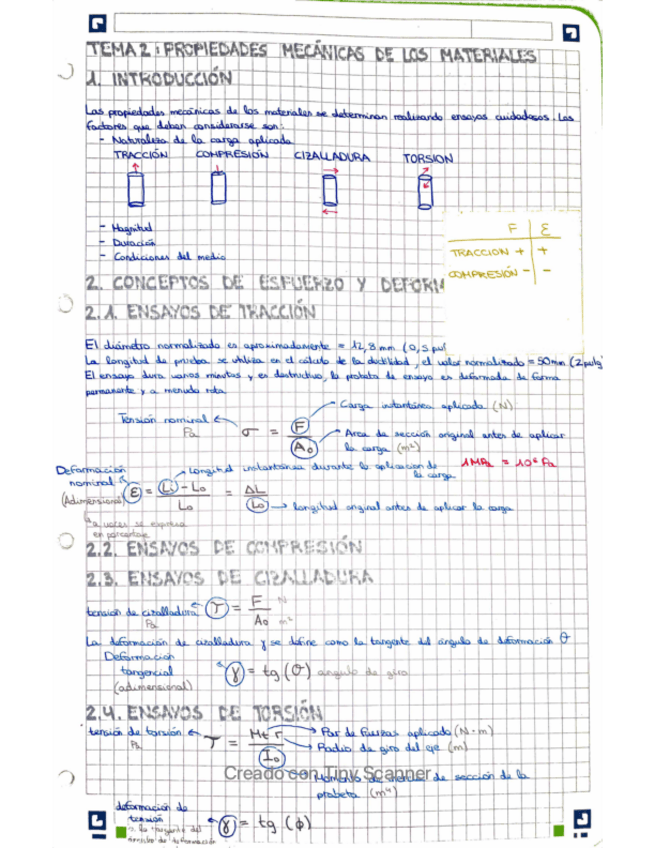 TEMA 2: PROPIEDADES MECÁNICAS DE LOS MATERIALES
1. INTRODUCCIÓN
Las propiedades mecánicas de los materiales se determinan realizando ensayos cuidadosos. Los
factores que deben considerarse son:
- Naturaleza de la carga aplicada
TRACCIÓN COMPRESIÓN CIZALLADURA TORSION
- Magnitud
- Duración
- Condiciones del medio
F ε
TRACCION + +
COMPRESIÓN - -
2. CONCEPTOS DE ESFUERZO Y DEFORM
2.1. ENSAYOS DE TRACCIÓN
El diámetro normalizado es aproximadamente = 12,8 mm (0,5 pul
La longitud de prueba se utiliza en el cálculo de la ductilidad, el valor normalizado = 50mm (2 pulg
El ensayo dura varios minutos y es destructivo, la probeta de ensayo es deformada de forma
permanente y a menudo rota.
Carga instantánea aplicada (N)
Tensión nominal
Pa
σ = F / A₀
Area de sección original antes de aplicar
la carga (m²)
1MPa = 10⁶ Pa
Deformación
nominal
(Adimensional)
Longitud instantánea durante la aplicación de
la carga
ε = Li - L₀ / L₀ = ΔL / L₀
longitud original antes de aplicar la carga
a veces se expresa
en porcentaje
2.2. ENSAYOS DE COMPRESIÓN
2.3. ENSAYOS DE CIZALLADURA
tensión de cizalladura
Pa
τ = F / A₀
N
m²
La deformación de cizalladura γ se define como la tangente del ángulo de deformación θ
Deformación
tangencial
(adimensional)
γ = tg(θ) angulo de giro
2.4. ENSAYOS DE TORSIÓN
tensión de torsión
Pa
τ = Mt r / I₀
Par de fuerzas aplicado (N·m)
Radio de giro del eje (m)
Creado con Tiny Scanner
Momento de inercia de sección de la
probeta (m⁴)
deformación de
tensión
γ = tg (ϕ)